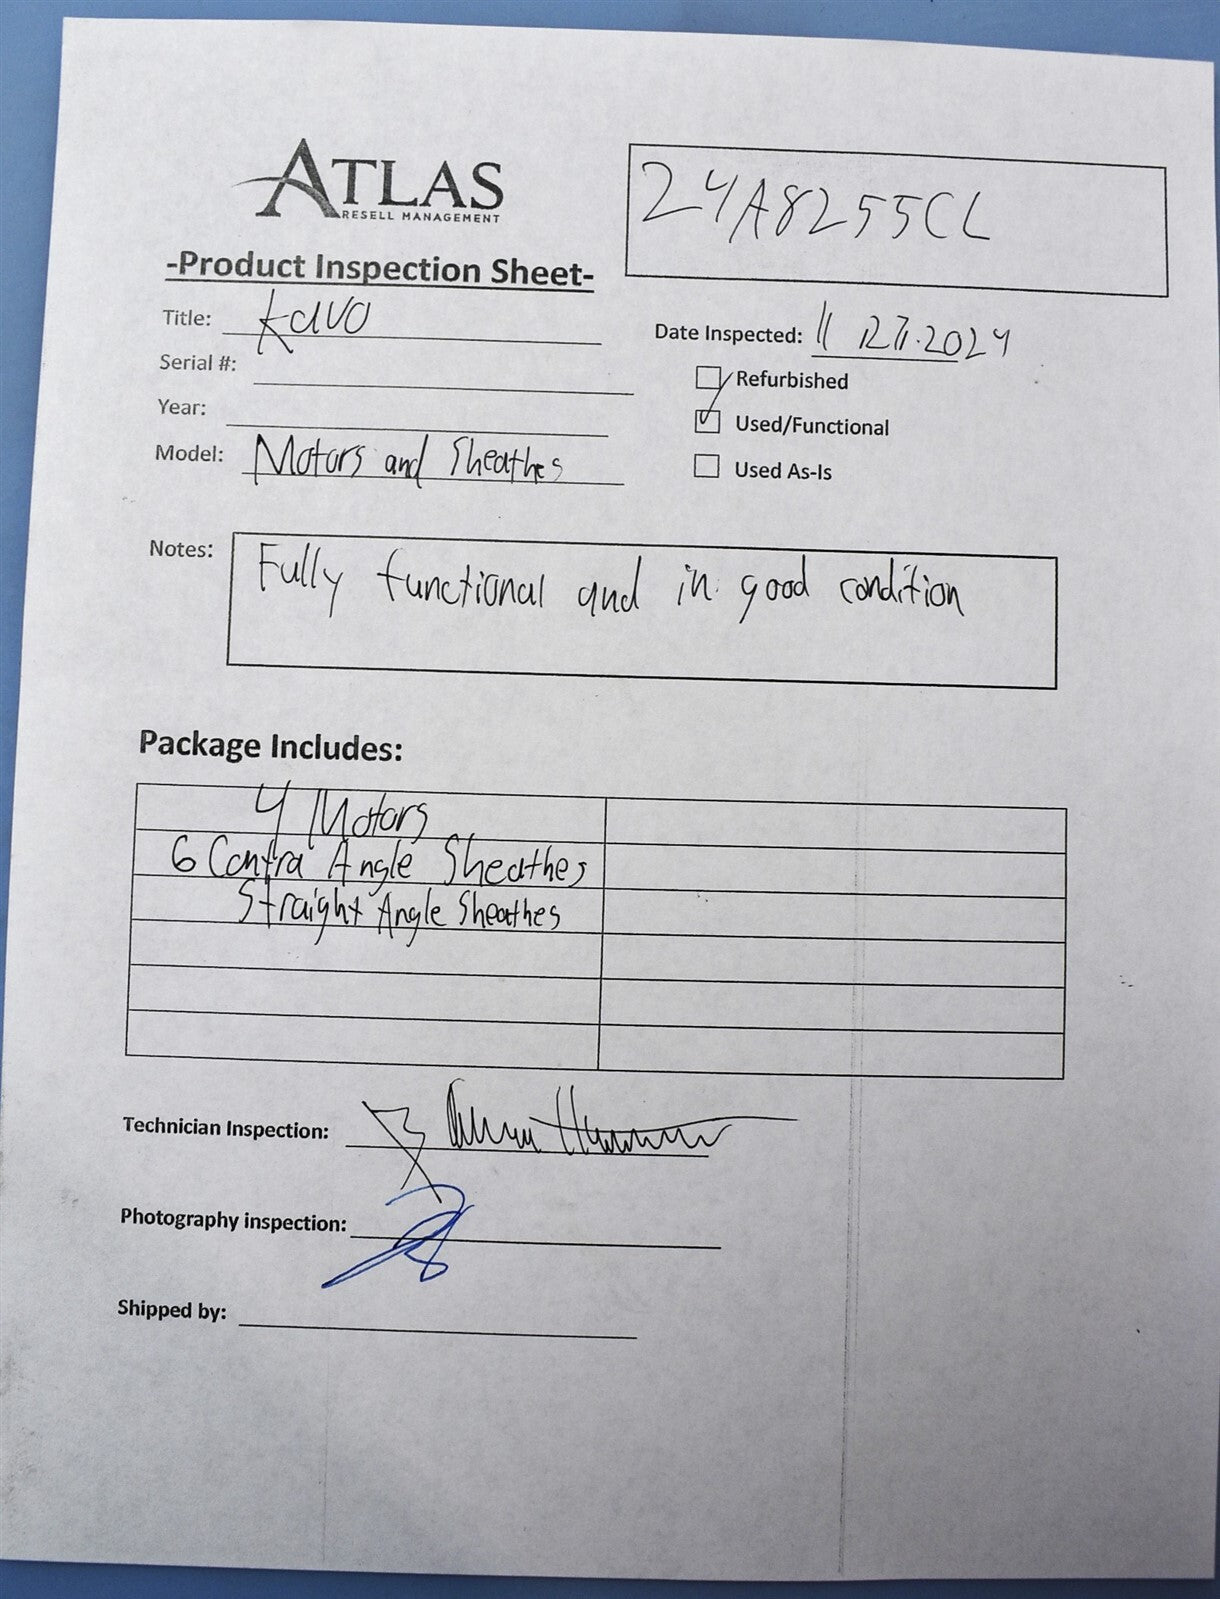 ATLAS
RESELL MANAGEMENT
24A8255CL
-Product Inspection Sheet-
Title: Kavo
Date Inspected: 11 2024
Serial #:
Refurbished
Year:
Used/Functional
Model: Motors and Sheathes
Used As-Is
Notes: Fully functional and in good condition
Package Includes:
4 Motors
6 Contra Angle Sheathes
Straight Angle Sheathes
Technician Inspection:
Photography inspection:
Shipped by: